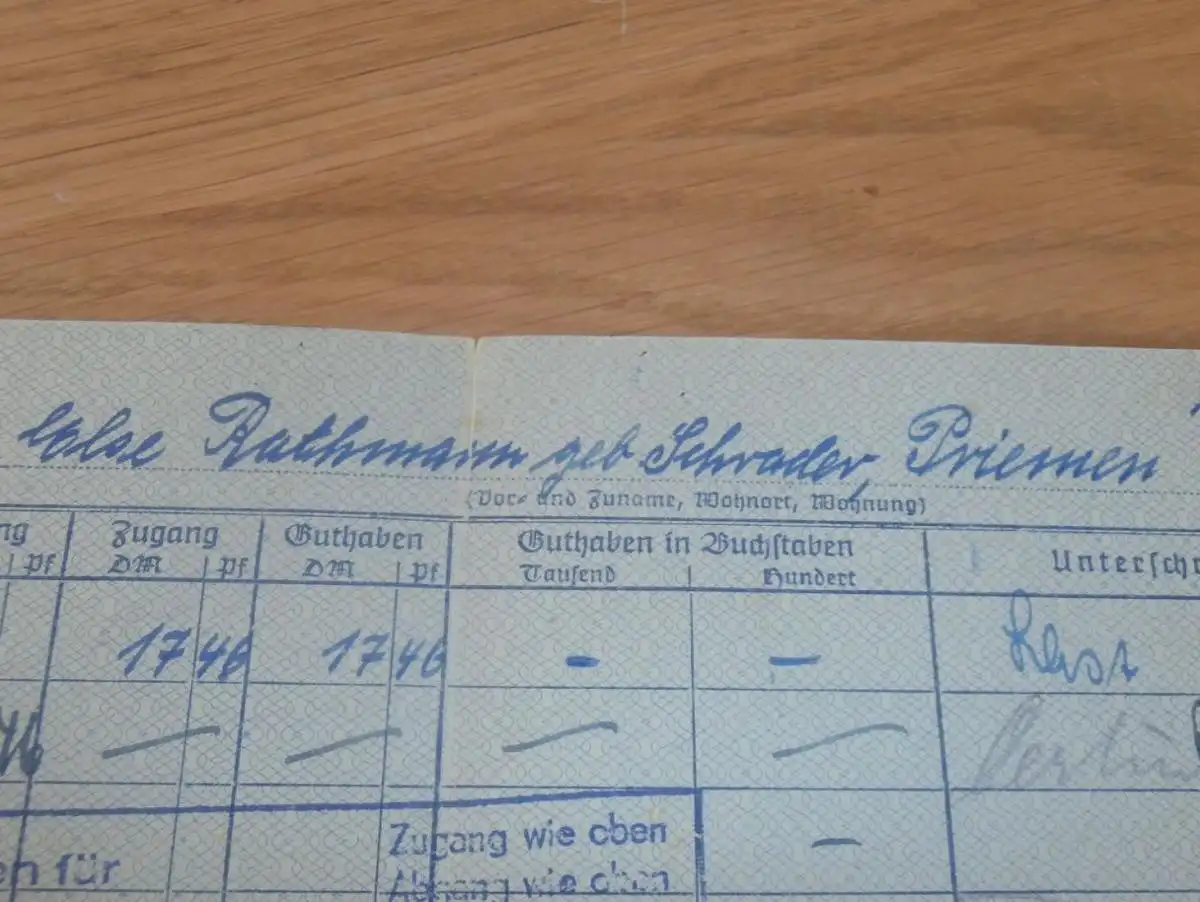 Else Rathmann geb Schrader, Priemen
(Vor- und Zuname, Wohnort, Wohnung)
ng Zugang Guthaben Guthaben in Buchstaben Unterschr
Pf DM Pf DM Pf Tausend Hundert
17 46 17 46 - -
46 — — — —
Zugang wie oben —
en für Abgang wie oben